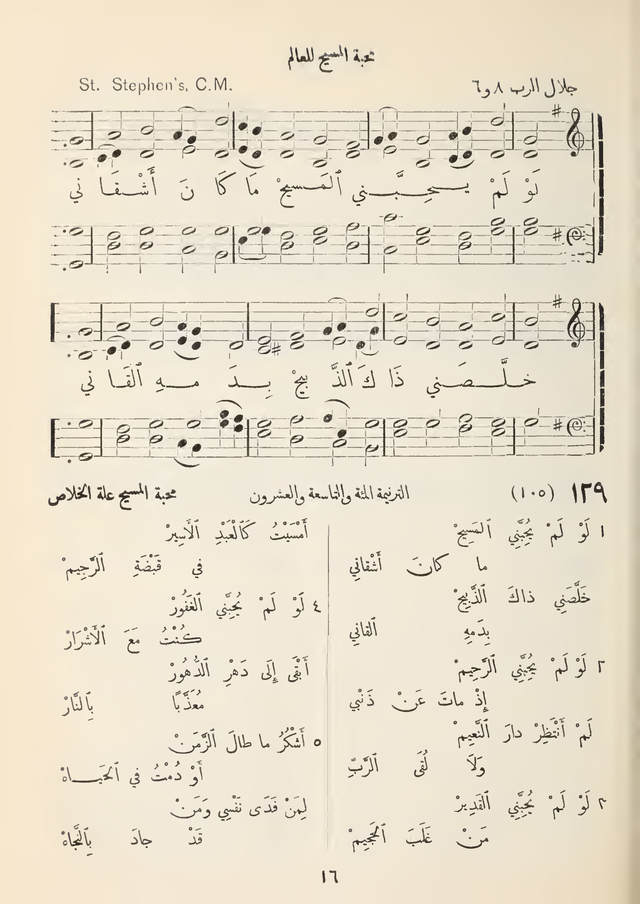 محبة المسيح للعالم
جلال الرب ٨ و٦ St. Stephen's, C.M.
لَوْ لَمْ يُـحِبَّـني الْمَسيحُ مَا كَا نَ أَشْـقَـا نِي
خلَّـصَـني ذَا كَ الذَّ بِيحُ بِـدَ مـهِ الْفَا نِي
١٢٩ (١٠٥) الترنيمة المئة والتاسعة والعشرون محبة المسيح علة الخلاص
١ لَوْ لَمْ يُحِبَّنِي الْمَسِيحْ
ما كانَ أَشْقانِي
خَلَّصَنِي ذاكَ الذَّبِيحْ
بِدَمِهِ القاني
٢ لَوْ لَمْ يُحِبَّنِي الرَّحِيمْ
إِذْ ماتَ عَنْ ذَنْبي
لَمْ أَنْتَظِرْ دارَ النَّعِيمْ
وَلَا لُقَى الرَّبِّ
٣ لَوْ لَمْ يُحِبَّنِي القَدِيرْ
مَنْ غَلَبَ الْجَحِيمْ
أَمْسَيْتُ كَالْعَبْدِ الأَسِيرْ
في قَبْضَةِ الرَّجِيمْ
٤ لَوْ لَمْ يُحِبَّنِي الغَفُورْ
كُنْتُ مَعَ الأَشْرَارْ
أَبْقَى إِلَى دَهْرِ الدُّهُورْ
مُعَذَّبًا بِالنَّارْ
٥ أَشْكُرُ ما طالَ الزَّمَنْ
أَوْ دُمْتُ في الحَيَاهْ
لِمَنْ فَدَى نَفْسِي وَمَنْ
قَدْ جادَ بِالنَّجَاهْ
١٦